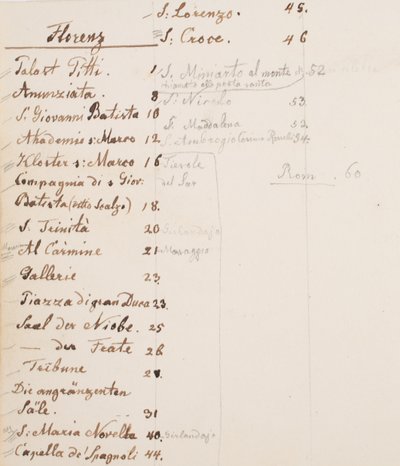 Florenz
Palast Pitti. 1
Anunziata. 8
S: Giovanni Batista 10
Akademie s: Marco 12
Kloster s: Marco 16
Compagnia di s Giov:
Batista (detto Scalzo) 18.
S. Trinità 20 Girlandajo
Al Cármine 21 Masaggio
Gallerie 23.
Piazza di gran Duca 23.
Saal der Niobe. 25
— der Fra̅te 26
Tribune
Die angränzenten
Säle. 31
S: Maria Novella 40. Girlandajo
Capella de' Spagnoli 44.
S: Lorenzo. 45.
S: Croce. 46
S. Miniato al monte 52
S: Nicolo 53.
S. Maddalena 53.
S. Ambrogio Cosimo Roselli 34.
Fiesole
Rom 60